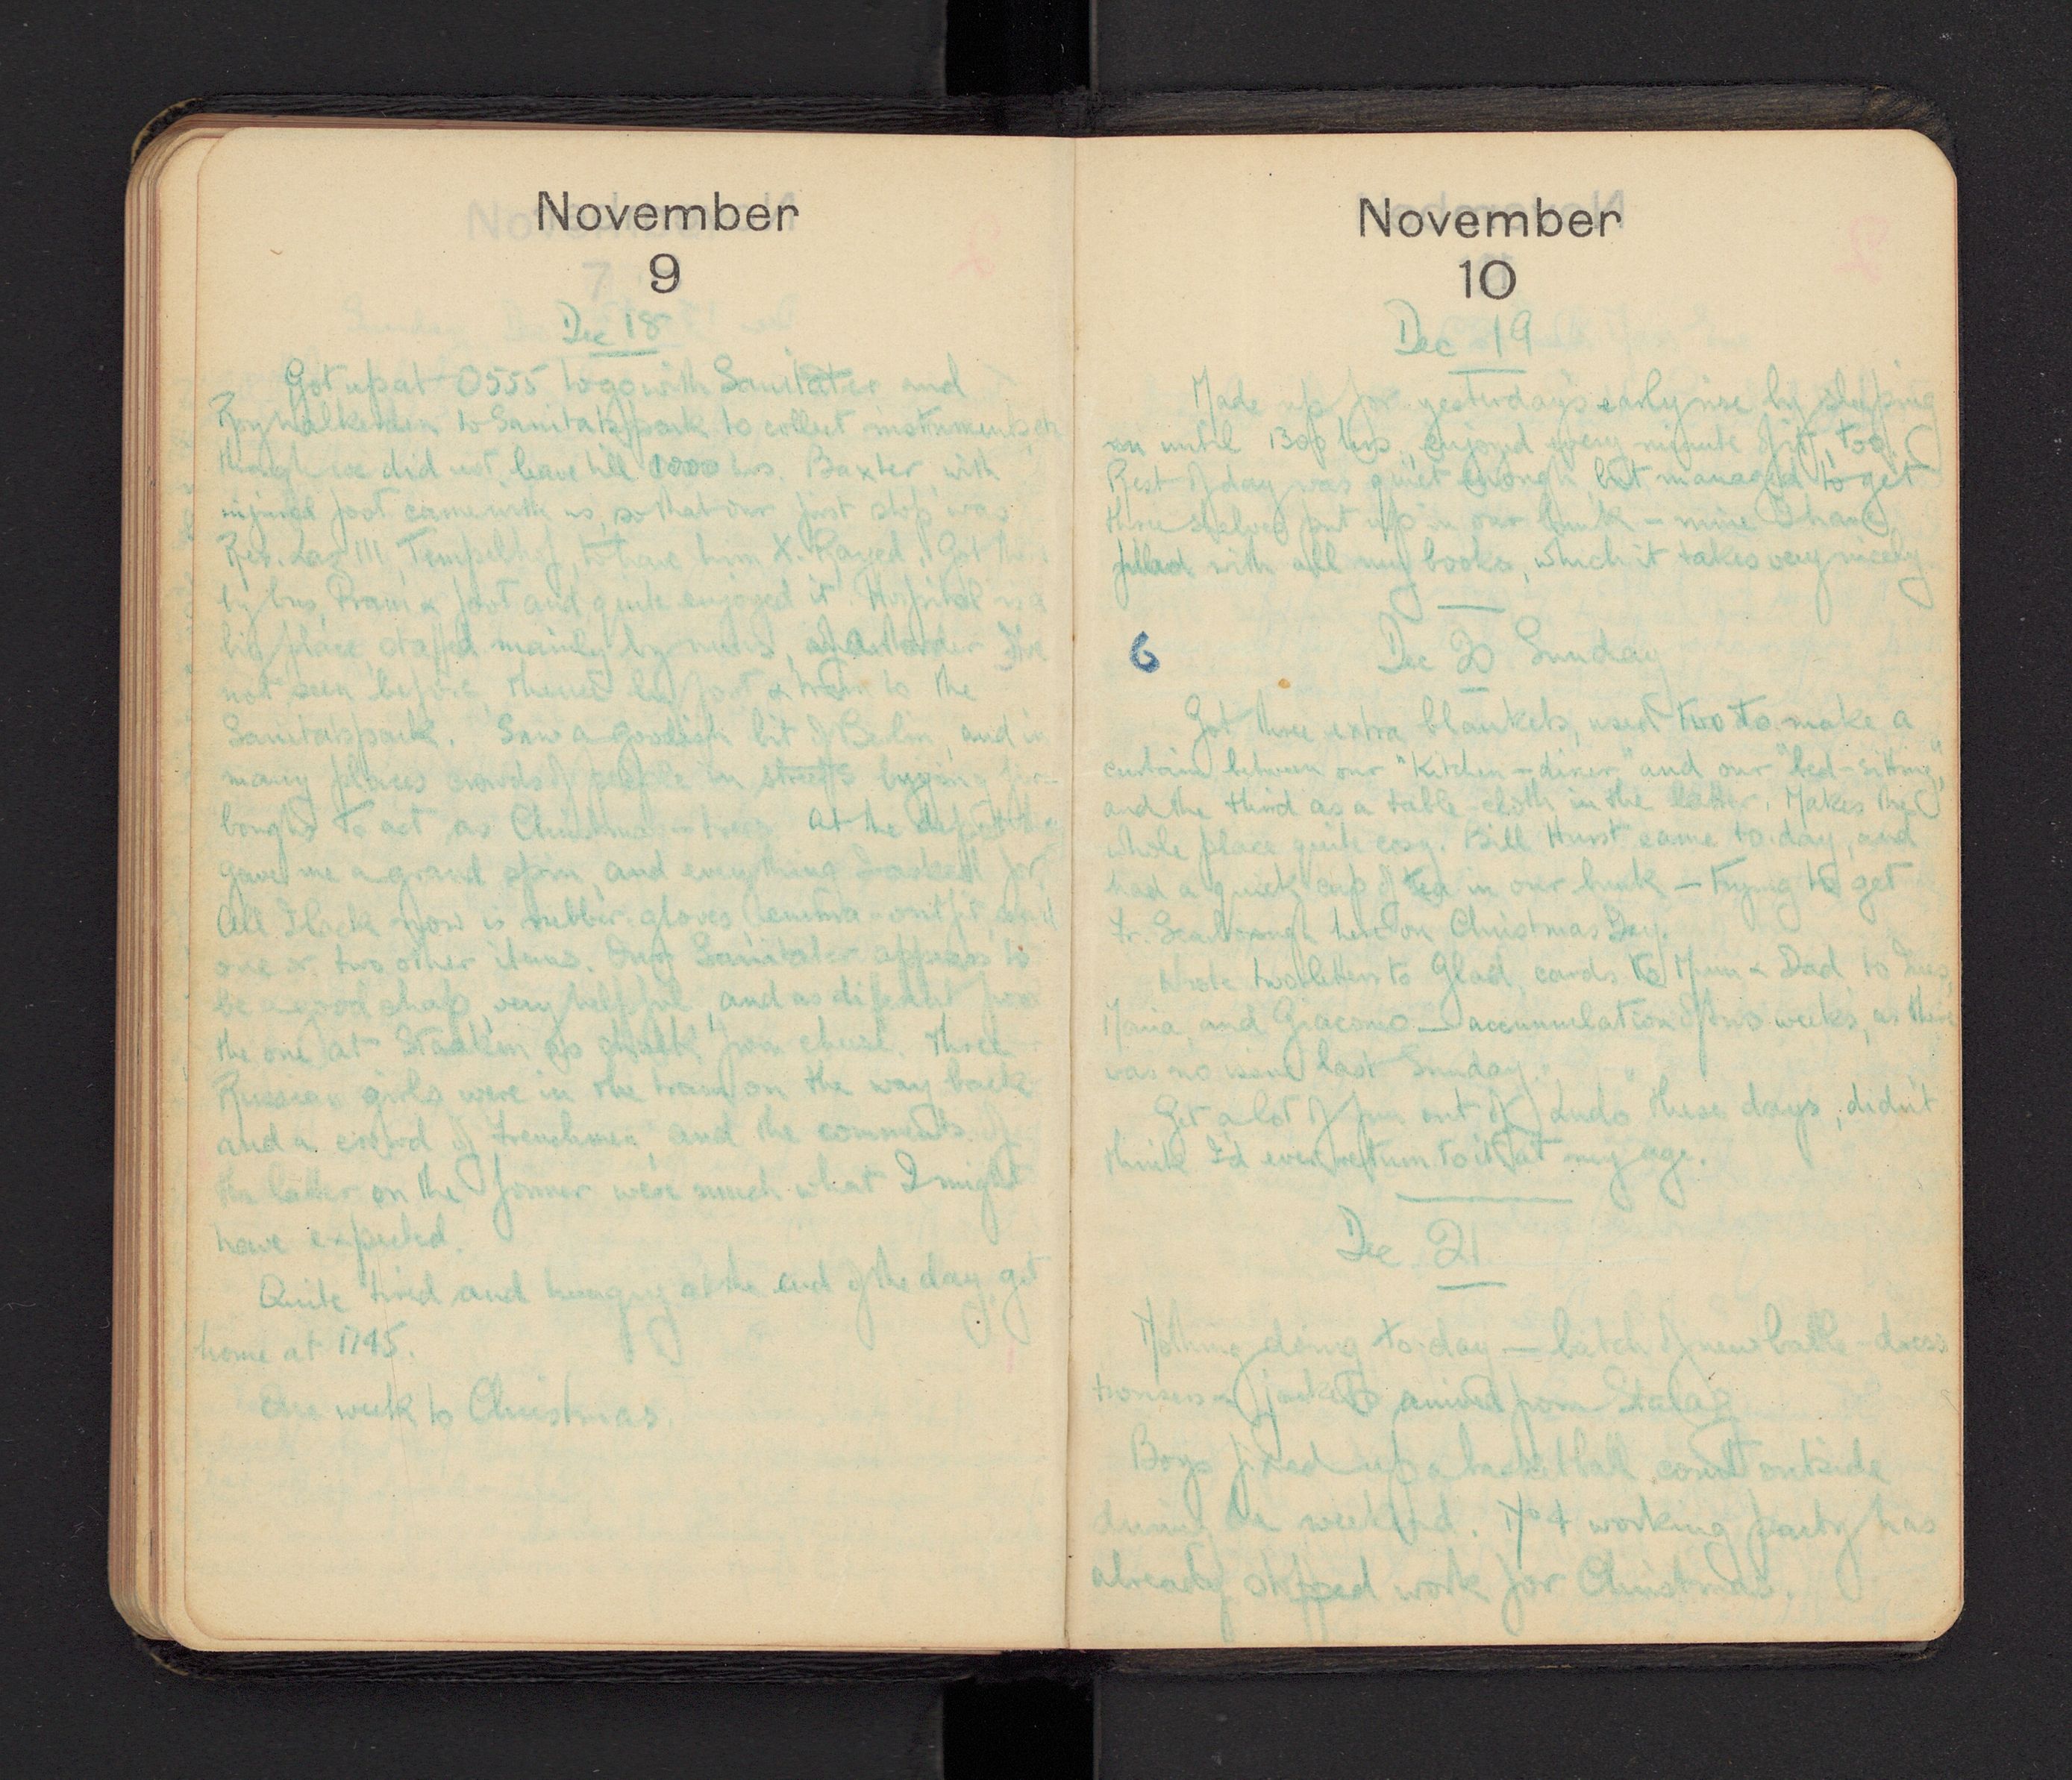 November
9
Dec 18
Got up at 0555 to go with Sanitater and
Roy Walkenden to Sanitatspark to collect instruments etc
though we did not leave till 1000 hrs. Baxter, with
injured foot came with us, so that our first stop was
Res. Laz 111, Tempelhof, to have him X-Rayed. Got there
by bus, tram & foot and quite enjoyed it. Hospital is a
big place, staffed mainly by nuns, of an order I've
not seen before, thence by foot & train to the
Sanitatspark. Saw a goodish bit of Berlin, and in
many places crowds of people in streets buying fir-
boughs to act as Christmas-trees. At the depot they
gave me a grand spin, and everything I asked for,
all I lack now is rubber-gloves, enema-outfit, and
one or two other items. Our Sanitater appears to
be a good chap, very helpful, and as different from
the one at Staaken as chalk from cheese. Three
Russian girls were in the tram on the way back
and a crowd of Frenchmen, and the comments of
the latter on the former were much what I might
have expected.
Quite tired and hungry at the end of the day, got
home at 1745.
One week to Christmas.
November
10
Dec 19
Made up for yesterday's early rise by sleeping
on until 1300 hrs, enjoyed every minute of it, too.
Rest of day was quiet enough, but managed to get
three shelves put up in our bunk - mine I have
filled with all my books, which it takes very nicely
6
Dec 20 Sunday
Got three extra blankets, used two to make a
curtain between our "kitchen-diner" and our "bed-sitting",
and the third as a table-cloth in the latter. Makes the
whole place quite cosy. Bill Hurst came to-day, and
had a quick cup of tea in our bunk - trying to get
Fr. Scarborough here on Christmas Day.
Wrote two letters to Glad, cards to Mum & Dad, to Ines,
Maria, and Giacomo - accumulation of two weeks, as there
was no issue last Sunday.
Get a lot of fun out of Ludo these days, didn't
think I'd ever return to it at my age.
Dec 21
Nothing doing to-day - batch of new battle-dress
trousers & jackets arrived from Stalag
Boys fixed up a basketball court outside
during the weekend. No 4 working party has
already stopped work for Christmas.